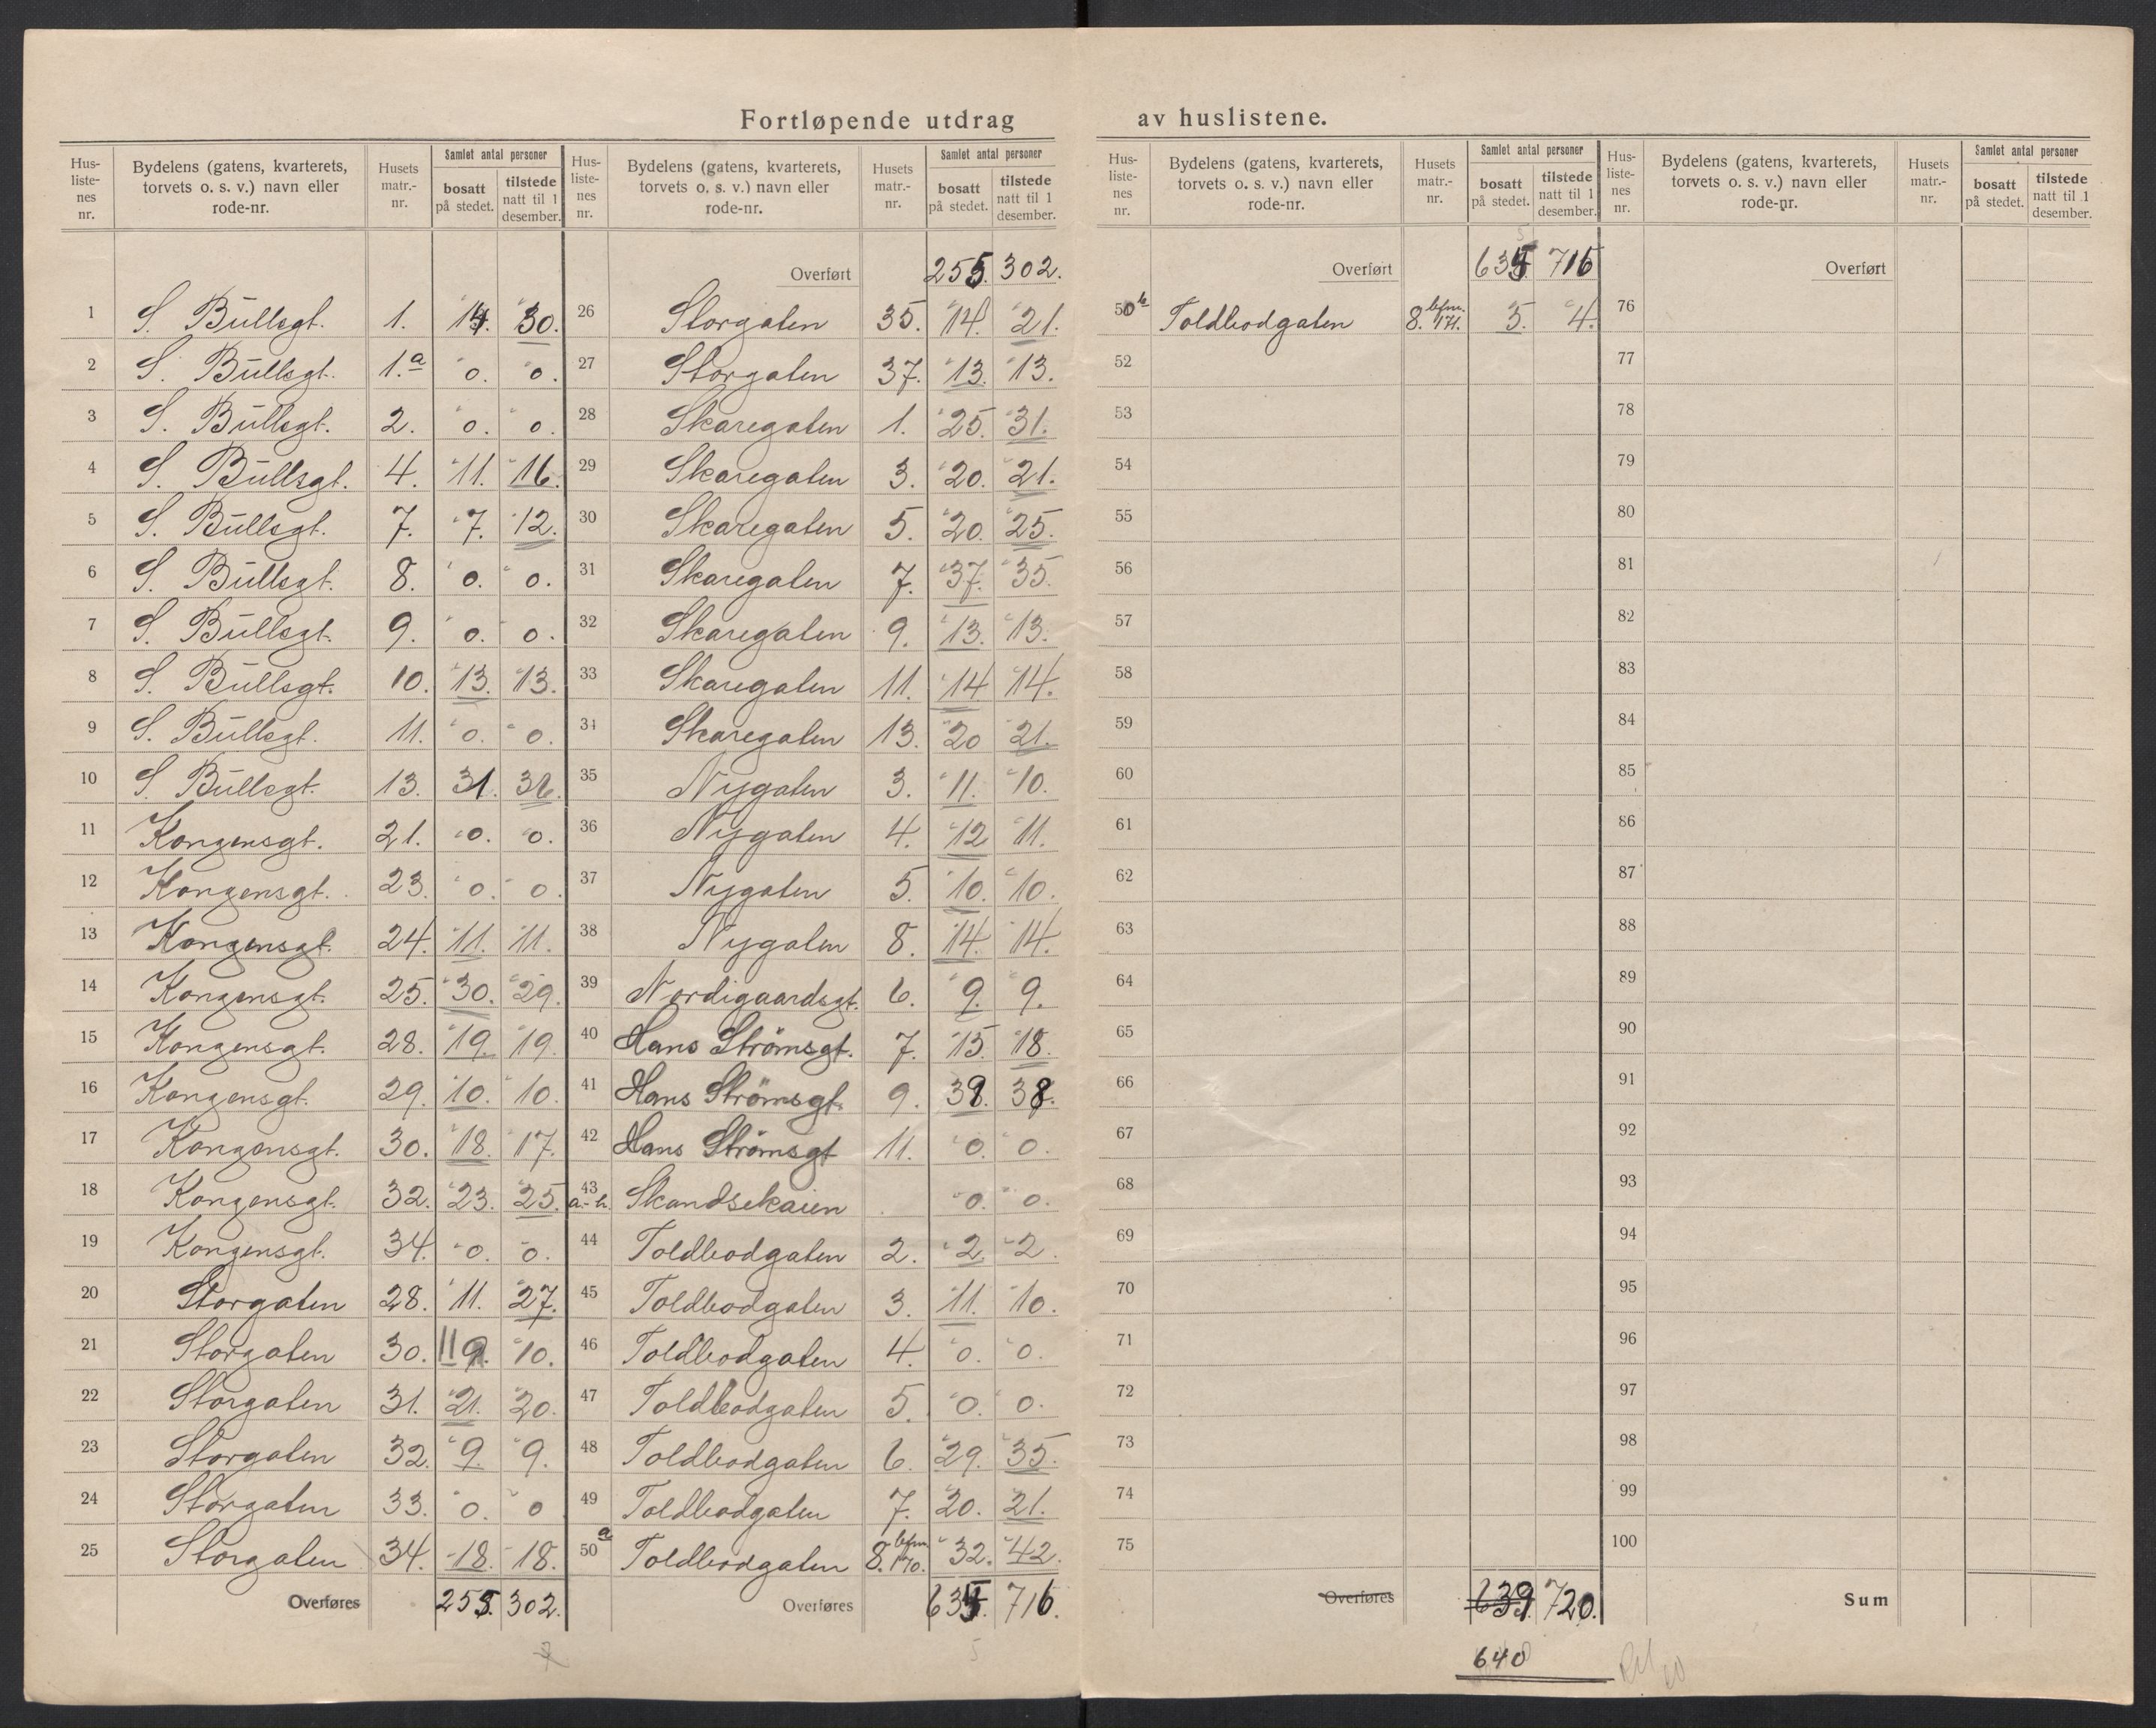 Fortløpende utdrag av huslistene.
Hus-liste-nes nr. | Bydelens (gatens, kvarterets, torvets o. s. v.) navn eller rode-nr. | Husets matr.-nr. | Samlet antal personer | bosatt på stedet. | tilstede natt til 1 desember.
1 S. Bullsgt. 1. 14. 30.
2 S. Bullsgt. 1.a 0. 0.
3 S. Bullsgt. 2. 0. 0.
4 S. Bullsgt. 4. 11. 16.
5 S. Bullsgt. 7. 7. 12.
6 S. Bullsgt. 8. 0. 0.
7 S. Bullsgt. 9. 0. 0.
8 S. Bullsgt. 10. 13. 13.
9 S. Bullsgt. 11. 0. 0.
10 S. Bullsgt. 13. 31. 36.
11 Kongensgt. 21. 0. 0.
12 Kongensgt. 23. 0. 0.
13 Kongensgt. 24. 11. 11.
14 Kongensgt. 25. 30. 29.
15 Kongensgt. 28. 19. 19.
16 Kongensgt. 29. 10. 10.
17 Kongensgt. 30. 18. 17.
18 Kongensgt. 32. 23. 25.
19 Kongensgt. 34. 0. 0.
20 Storgaten 28. 11. 27.
21 Storgaten 30. 9. 10.
22 Storgaten 31. 21. 20.
23 Storgaten 32. 9. 9.
24 Storgaten 33. 0. 0
25 Storgaten 34. 18. 18.
Overføres 255. 302.
Hus-liste-nes nr. | Bydelens (gatens, kvarterets, torvets o. s. v.) navn eller rode-nr. | Husets matr.-nr. | Samlet antal personer | bosatt på stedet. | tilstede natt til 1 desember.
Overført 255. 302.
26 Storgaten 35. 14. 21.
27 Storgaten 37. 13. 13.
28 Skaregaten 1. 25. 31.
29 Skaregaten 3. 20. 21.
30 Skaregaten 5. 20. 25.
31 Skaregaten 7. 37. 35.
32 Skaregaten 9. 13. 13.
33 Skaregaten 11. 14 14.
34 Skaregaten 13. 20 21.
35 Nygaten 3. 11. 10.
36 Nygaten 4. 12 11.
37 Nygaten 5. 10. 10.
38 Nygaten 8. 14. 14.
39 Nordigaardsgt. 6. 9. 9.
40 Hans Strömsgt. 7. 15. 18.
41 Hans Strömsgt. 9. 38.
42 Hans Strömsgt 11. 0. 0.
43 a.-h. Skandsekaien 0. 0.
44 Toldbodgaten 2. 2. 2.
45 Toldbodgaten 3. 11. 10.
46 Toldbodgaten 4. 0. 0.
47 Toldbodgaten 5. 0. 0.
48 Toldbodgaten 6. 29. 35.
49 Toldbodgaten 7. 20. 21.
50 a Toldbodgaten 8. lfnr. 170. 32. 42.
Overføres 635. 716.
Hus-liste-nes nr. | Bydelens (gatens, kvarterets, torvets o. s. v.) navn eller rode-nr. | Husets matr.-nr. | Samlet antal personer | bosatt på stedet. | tilstede natt til 1 desember.
Overført 635. 716
50 b Toldbodgaten 8. lfnr. 171. 5. 4.
52
53
54
55
56
57
58
59
60
61
62
63
64
65
66
67
68
69
70
71
72
73
74
75
Overføres 639. 720.
640
Hus-liste-nes nr. | Bydelens (gatens, kvarterets, torvets o. s. v.) navn eller rode-nr. | Husets matr.-nr. | Samlet antal personer | bosatt på stedet. | tilstede natt til 1 desember.
Overført
76
77
78
79
80
81
82
83
84
85
86
87
88
89
90
91
92
93
94
95
96
97
98
99
100
Sum